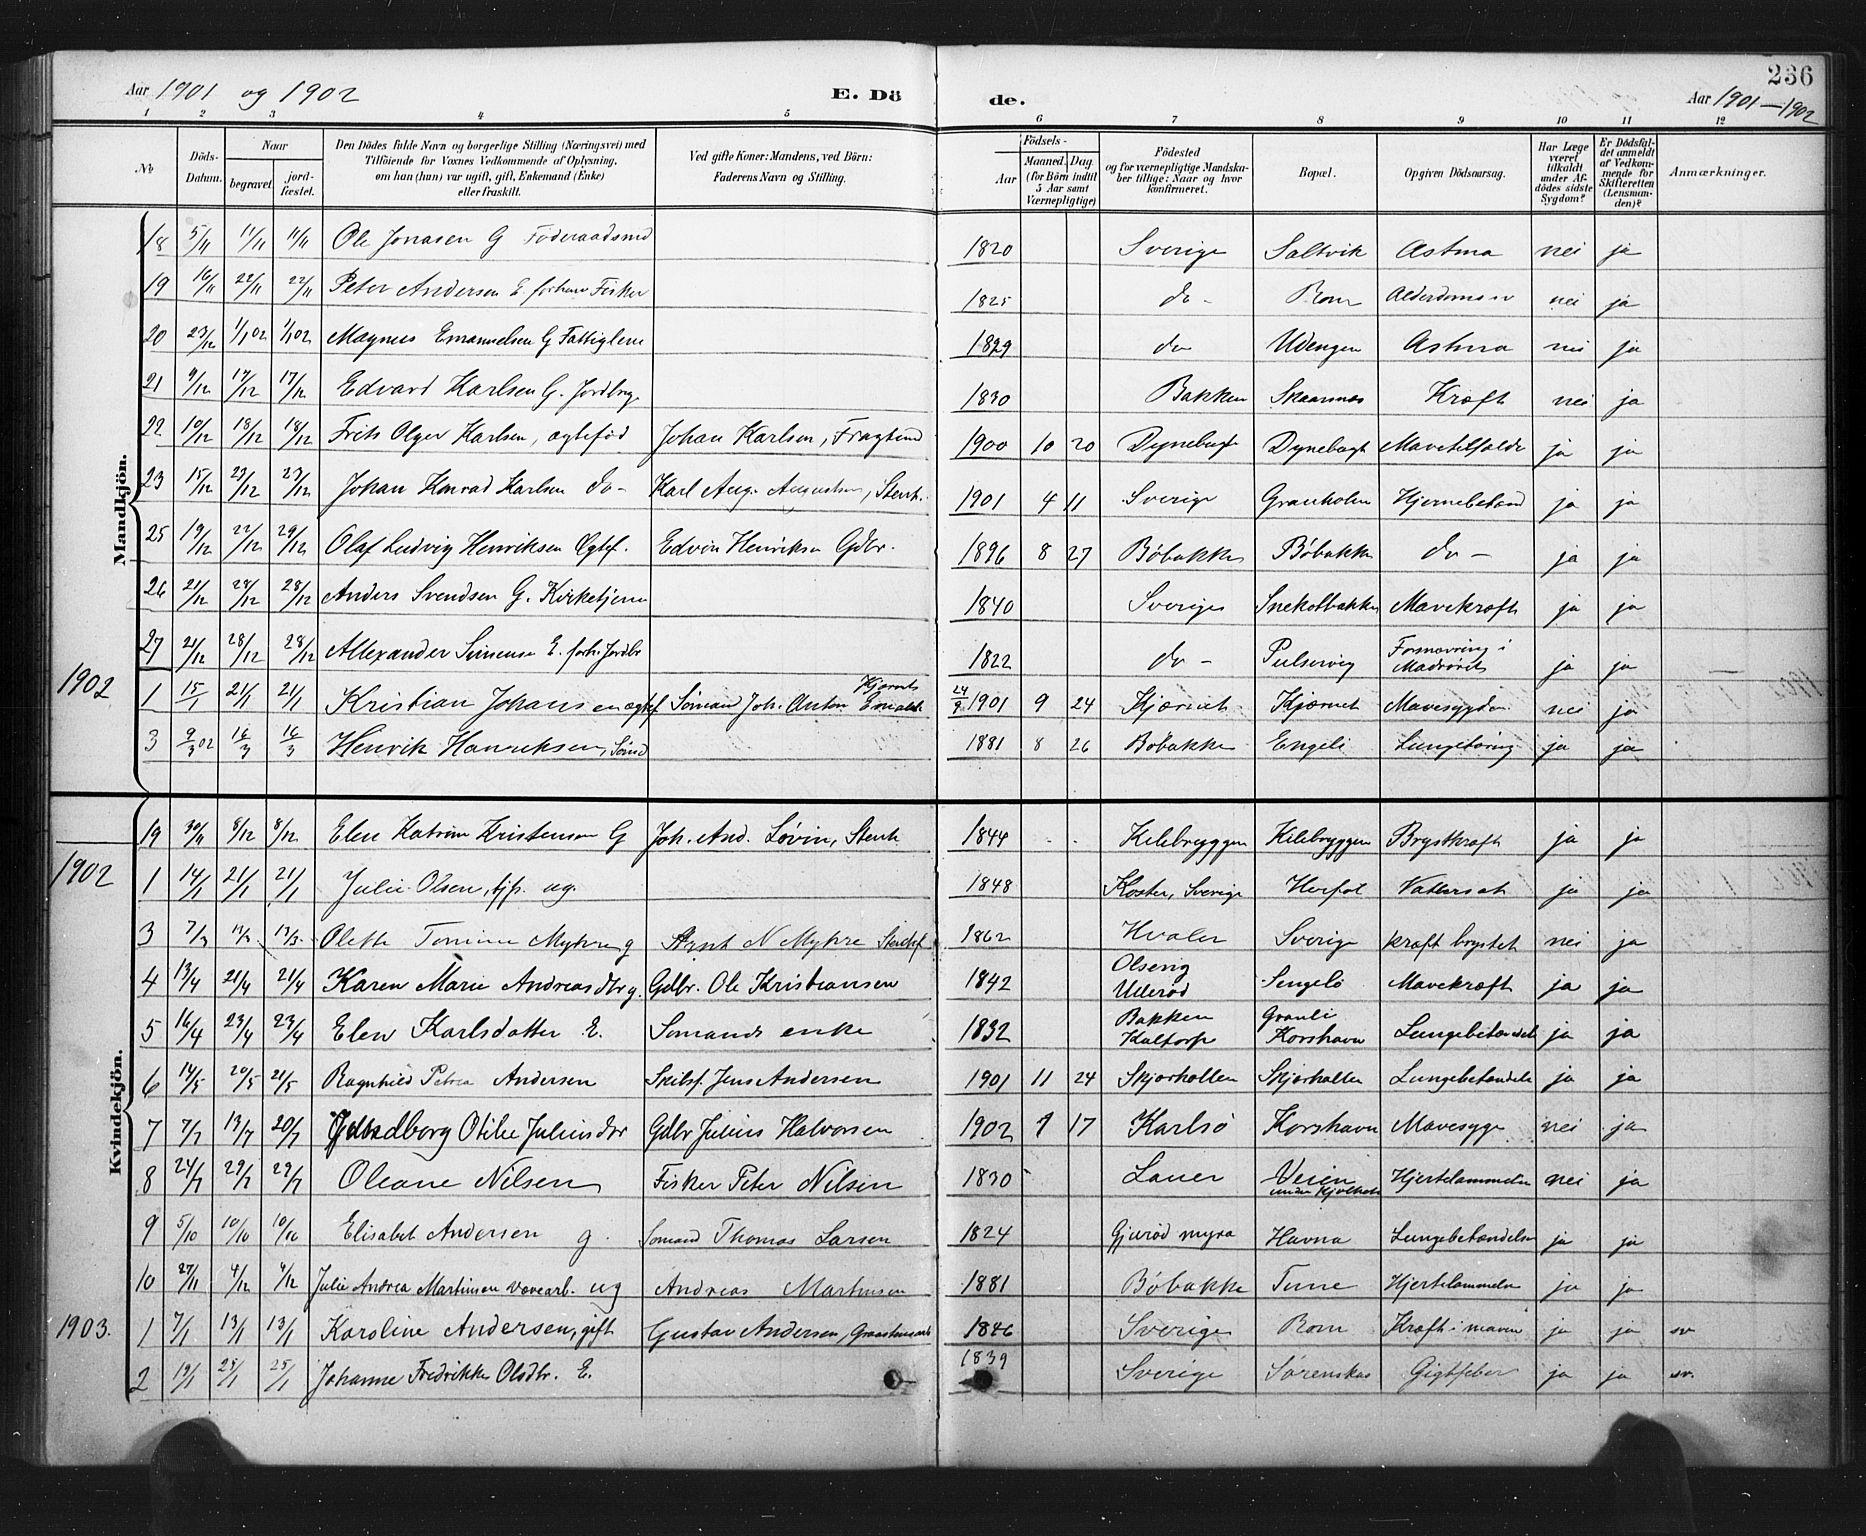 236
Aar 1901 og 1902 E. Dö de. Aar 1901—1902
1 2 3 4 5 6 7 8 9 10 11 12
No
Döds-Datum.
Naar
begravet.
jord-fæstet.
Den Dödes fulde Navn og borgerlige Stilling (Næringsvei) med
Tilföiende for Voxnes Vedkommende af Oplysning,
om han (hun) var ugift, gift, Enkemand (Enke)
eller fraskilt.
Ved gifte Koner: Mandens, ved Börn:
Faderens Navn og Stilling.
Födsels-
Aar
Maaned. Dag.
(for Börn indtil
5 Aar samt
Værnepligtige)
Födested
og for værnepligtige Mandska-
ber tillige: Naar og hvor
konfirmeret.
Bopæl.
Opgiven Dödsaarsag.
Har Læge
været
tilkaldt
under Af-
dödes sidste
Sygdom?
Er Dödsfal-
det anmeldt
af Vedkom-
mende for
Skifteretten
(Lensman-
den)?
Anmærkninger.
Mandkjön.
18 5/11 11/11 11/11 Ole Jonasen G Föderaadsmd 1820 Sverige Saltvik Astma nei ja
19 16/11 22/11 22/11 Peter Andersen E. forhenv Fisker 1825 do - Rom nei ja
20 23/12 1/1 02 1/1 02 Magnus Emanuelsen G Fattiglem 1829 do Udengen Astma nei ja
21 9/12 17/12 17/12 Edvard Karlsen G. Jordbrg. 1830 Bakken Kræft nei ja
22 10/12 18/12 18/12 Frits Olger Karlsen, ægtefød Johan Karlsen, 1900 10 20 Dynebugt Dynebugt ja ja
23 15/12 23/12 23/12 Johan Konrad Karlsen do - Karl Aug. Augustsen, Stenh. 1901 4 11 Sverige Granholen Hjernebetænd ja ja
25 19/12 22/12 29/12 Olaf Ludvig Henriksen Ægtef. Edvin Henriksen Gdbr. 1896 8 27 Böbakken Böbakken do - ja ja
26 21/12 28/12 28/12 Anders Svendsen G. Kirketjener 1840 Sverige Snekotbakken Mavekræft ja ja
27 21/12 28/12 28/12 Allexander Simensen E. forh. Jordbr 1822 do - Pulservig Forsnævring i Madrörit ja ja
1902
1 15/1 21/1 21/1 Kristian Johansen ægtef Sömand Joh. Anton Kjærnet 24/9 1901 9 24 Kjærnet Kjærnet Mavesygdom nei ja
3 9/3 02 16/3 16/3 Henrik Henriksen, Sömd 1881 8 26 Böbakken Engeli Lungetæring ja ja
Kvindekjön.
19 30/11 8/12 8/12 Elen Katrine Kristensen G Joh. And. Lövin, Stenh 1844 Kilebryggen Kilebryggen Brystkræft ja ja
1902
1 14/1 21/1 21/1 Julie Olsen, tjp. ug. 1848 Koster, Sverige Herföl Vattersot ja ja
3 7/3 13/3 13/3 Olette Tomine Myhre g Arnt N Myhre Stenhf 1862 Hvaler Sverige kræft brystet nei ja
4 13/4 21/4 21/4 Karen Marie Andreasdtr g. Gdbr. Ole Kristiansen 1842 Olservig Ulleröd Sengelö Mavekræft ja ja
5 16/4 23/4 23/4 Elen Karlsdatter E. Sömands enke 1832 Bakken Kaltorp Granli Korshavn Lungebetændels ja ja
6 14/5 20/5 21/5 Ragnhild Petrea Andersen Skibsf. Jens Andersen 1901 11 24 Skjærhallen Skjærhallen Lungebetændels ja ja
7 7/7 13/7 20/7 Otilie Juliusdtr Gdbr Julius Halvorsen 1902 17 Karlsö Korshavn Mavesyge nei ja
8 24/7 29/7 29/7 Oleane Nilsen Fisker Peter Nilsen 1830 Lauer Veien Hjertelammelse nei ja
9 5/10 10/10 10/10 Elisabet Andersen g. Sömand Thomas Larsen 1824 Gjuröd myra Havna Lungebetændelse ja ja
10 27/11 4/12 4/12 Julie Andrea Martinsen vævearb. ug Andreas Martinsen 1881 Böbakke Tune Hjertelammelse ja ja
1903.
1 7/1 13/1 13/1 Karoline Andersen, gift Gustav Andersen, 1846 Sverige Rom Kræft i maven ja ja sv
2 19/1 25/1 25/1 Johanne Fredrikke Olsdtr. E. 1839 Sverige Sörenskas Gigtfeber ja ja sv.